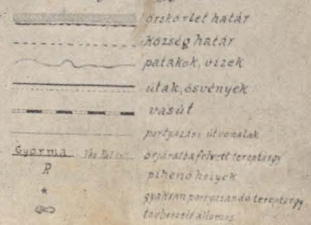 őrskörlet határ
község határ
patakok, vizek
utak, ösvények
vasút
portyázási útvonalak
Gyorma őrjáratba felvett tereptárgy
R pihenő helyek
gyakran portyázandó tereptárgy
távbeszélő állomás